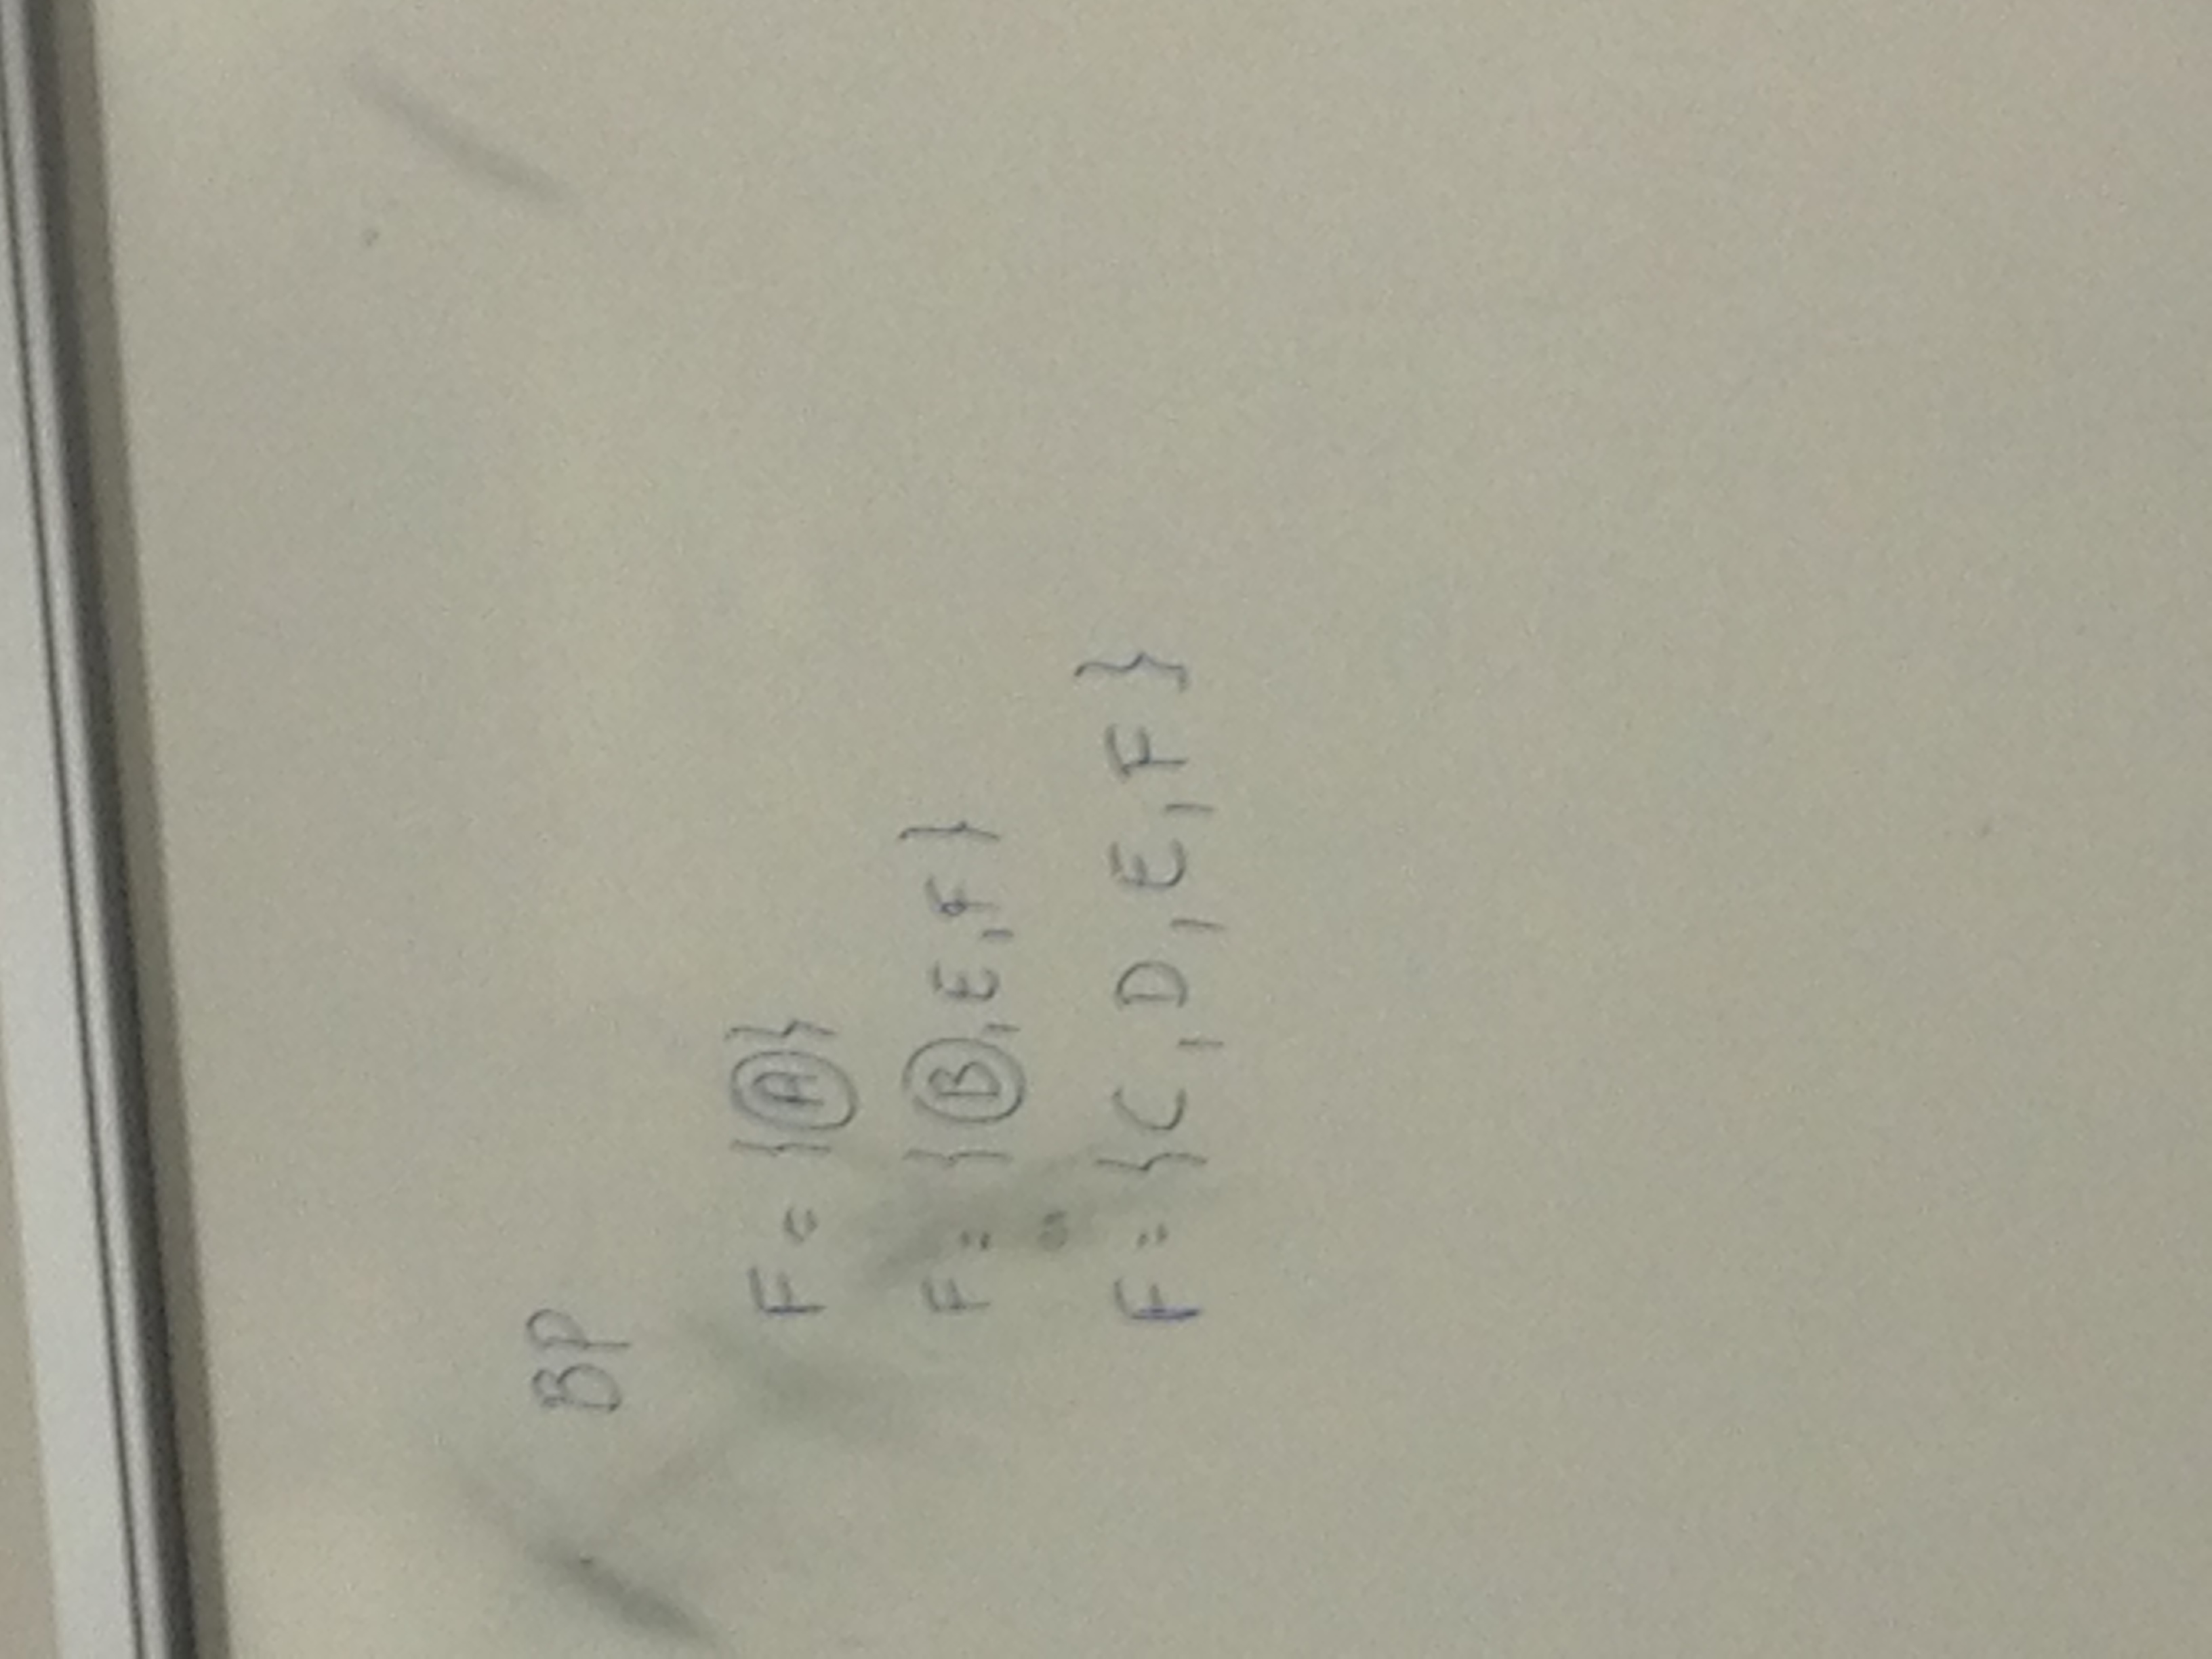 BP
F = {A}
F = {B, E, F}
F = {C, D, E, F}